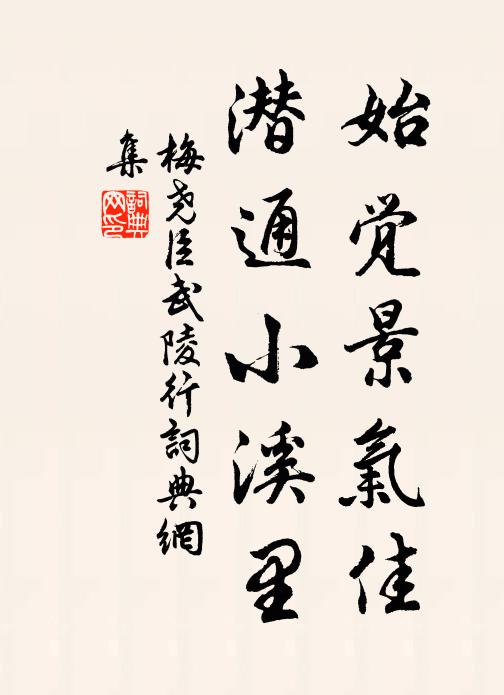 始觉景氣佳
潜通小溪里
梅尧臣武陵行詞典網
集
詞典网印